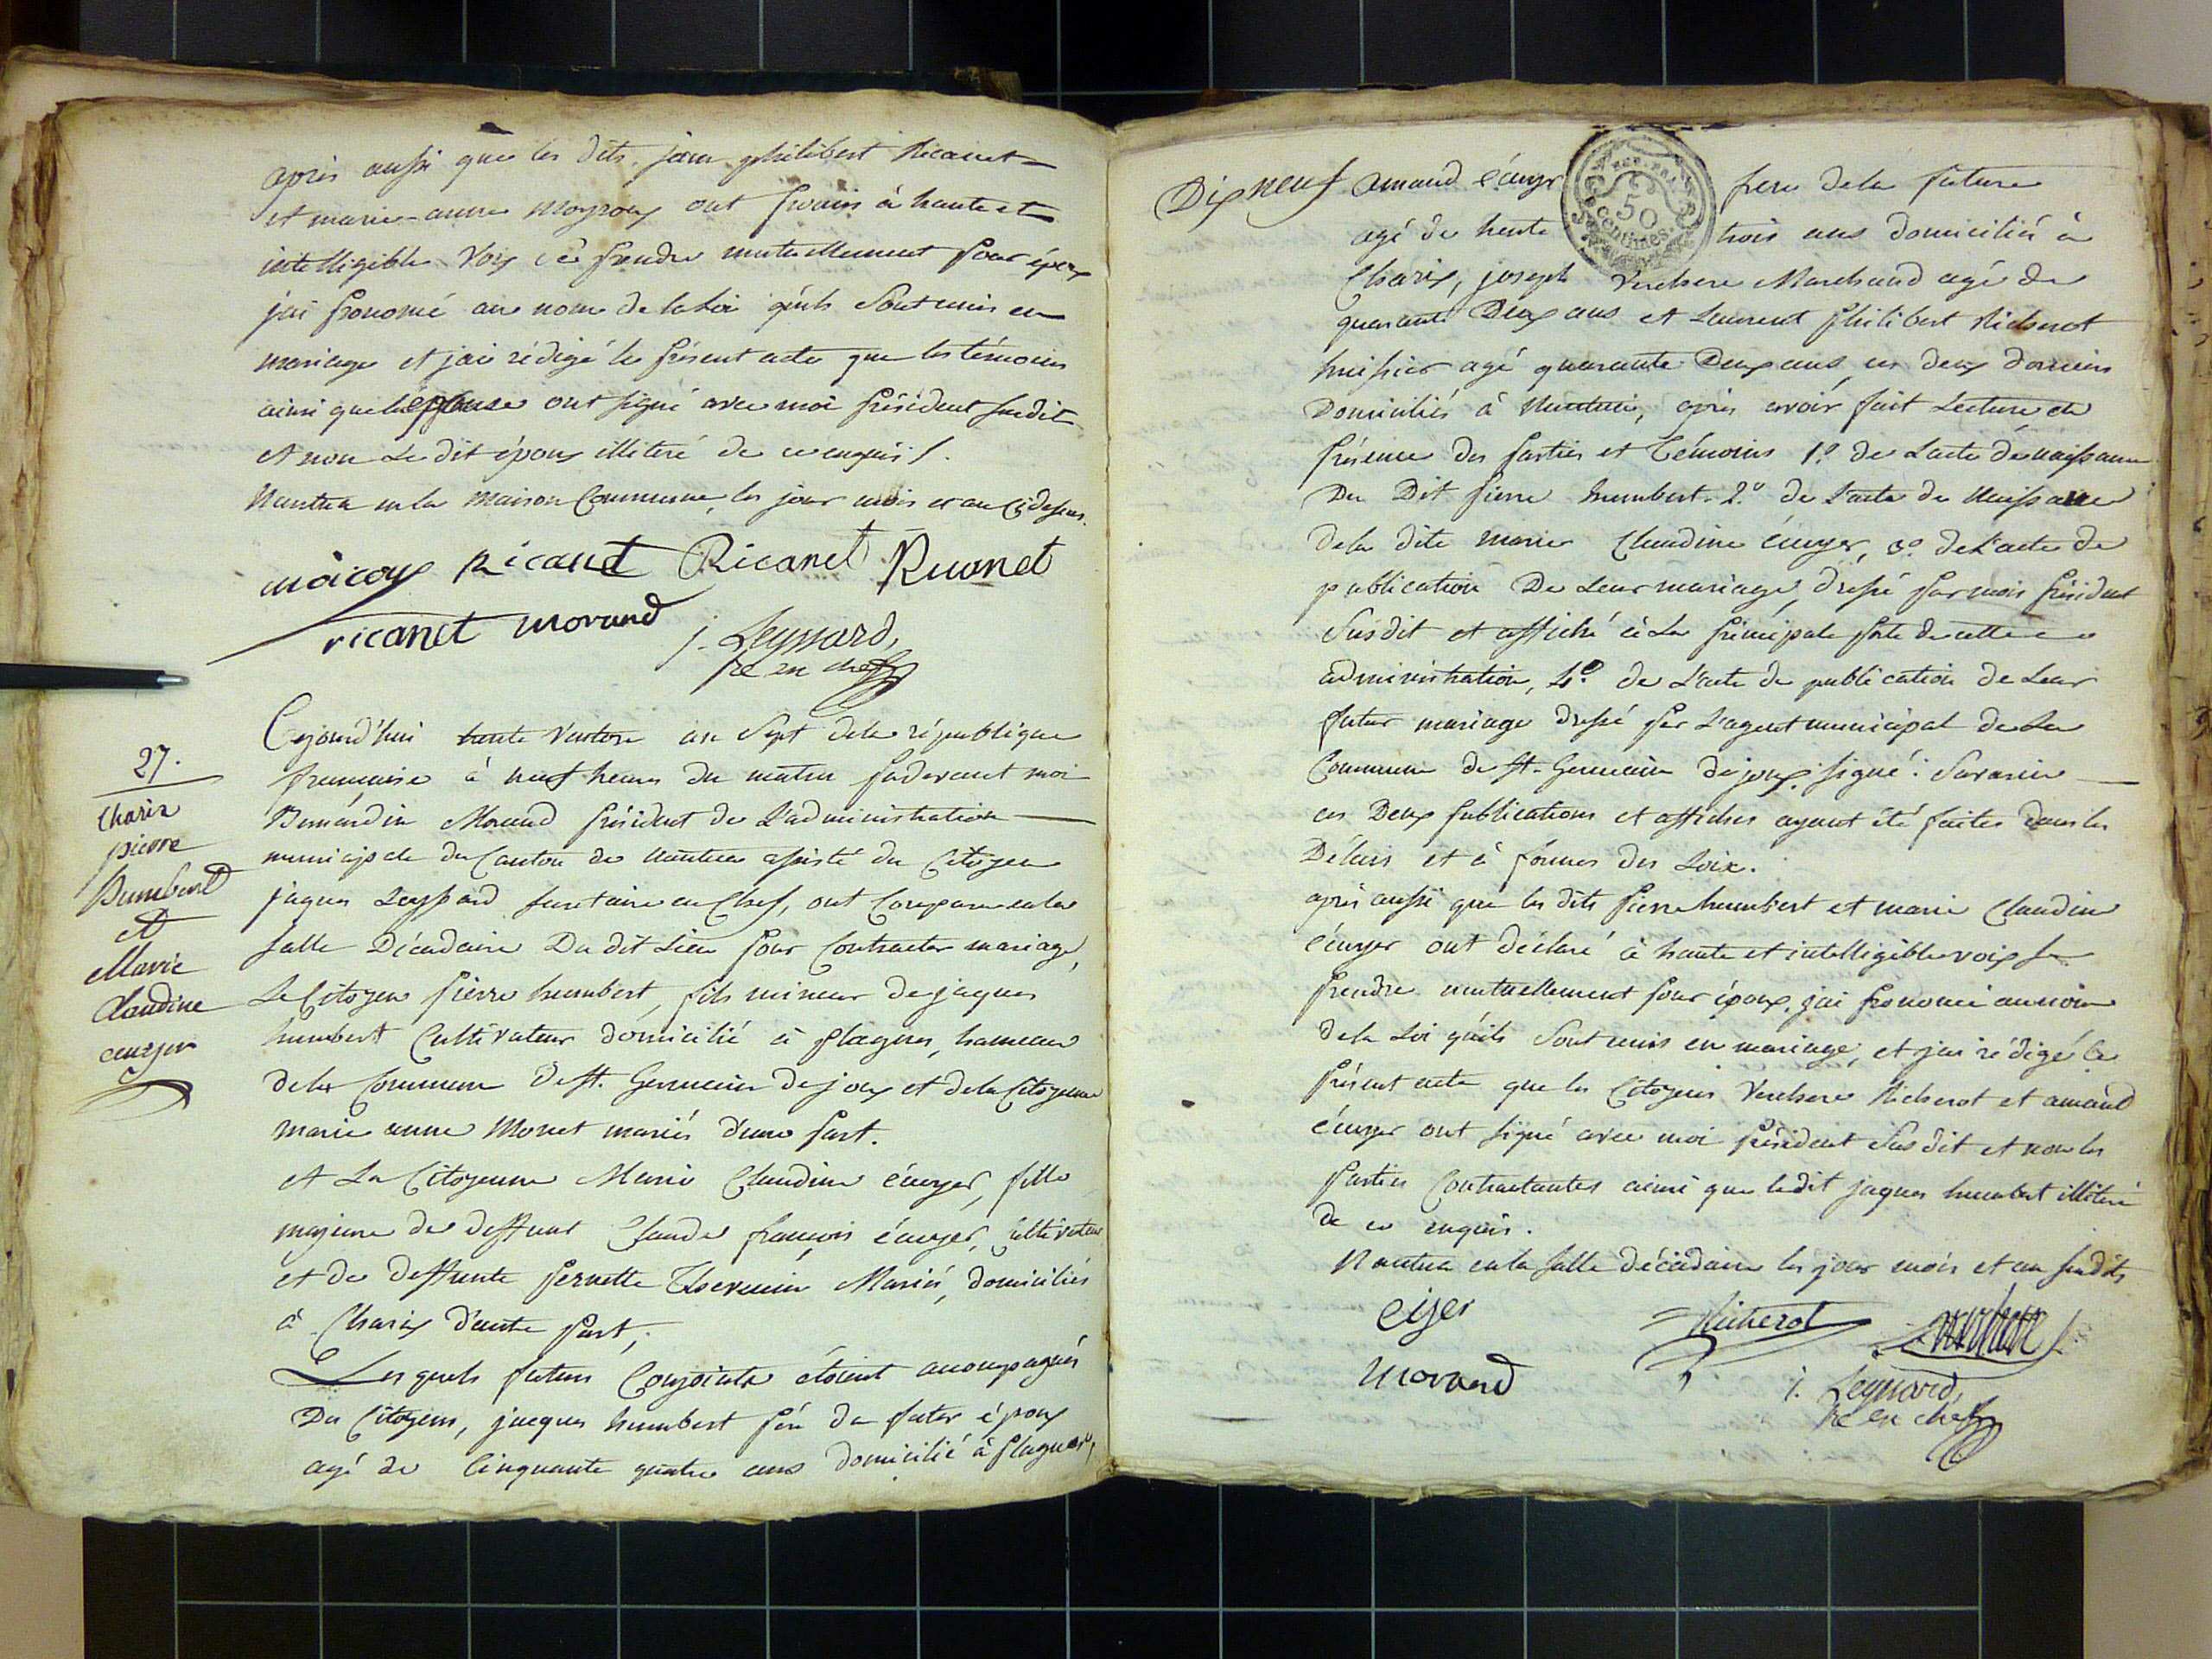 après aussi que les dits jean philibert Ricanet
et marie-anne moyroux ont promis à haute et
intelligible Voix de se prendre mutuellement pour époux
j'ai prononcé au nom de la Loi qu'ils Sont unis en
mariage et j'ai rédigé le présent acte que les témoins
ainsi que l'épouse ont signé avec moi président susdit
et non Le dit époux illitéré de ce enquis /.
Nantua en la maison Commune, les jour mois et an Cidessus.
Ricanet Ricanet
ricanet morand
j. Leyssard,
re en chef
27.
Charix
pierre
humbert
et
Marie
Claudine
eusyer
Cejourd'hui trente Ventose an Sept de la république
française à neuf heures du matin pardevant moi
Bernardin Morand président de L'administration
municipale du Canton de Nantua assisté du Citoyen
jaques Leyssard secrétaire en Chef, ont Comparu en la
salle Décadaire Du dit Lieu pour Contracter mariage,
Le Citoyen pierre humbert, fils mineur de jaques
humbert Cultivateur domicilié à plagnes, hameau
de la Commune de st. Germain de joux et de la Citoyenne
marie anne Monet mariés d'une part.
et La Citoyenne Marie Claudine écuyer, fille
majeure de deffunt Claude françois écuyer, Cultivateur
et de deffunte pernette Mariés, domiciliés
à Charix d'autre part,
Les quels futurs Conjoints étoient accompagnés
Des Citoyens, jacques humbert père du futur époux
agé de Cinquante quatre ans domicilié à plagnes,
Dix neuf
amand écuyer frere de la future
agé de trente trois ans domicilié à
Charix, joseph Verchere Marchand agé de
quarante Deux ans et Laurent philibert Richerot
huissier agé quarante Deux ans, ces deux derniers
Domiciliés à Nantua, après avoir fait Lecture en
présence des parties et Témoins 1.o de L'acte de naissance
Du Dit pierre humbert. 2.o de L'acte de Naissance
de la dite marie Claudine écuyer, 3.o de L'acte de
publication De Leur mariage, dressé par moi président
Susdit et affiché à La principale porte de cette
administration, 4.o de L'acte de publication de Leur
futur mariage dressé par L'agent municipal de La
Commune de st. Germain de joux, signé: Savarin
ces Deux publications et affiches ayant été faites dans les
Délais et à formes des Loix.
après aussi que les dits pierre humbert et marie Claudine
écuyer ont déclaré à haute et intelligible voix se
prendre mutuellement pour époux, j'ai prononcé au nom
de la Loi qu'ils Sont unis en mariage, et j'ai rédigé le
présent acte que les Citoyens Verchere Richerot et amand
écuyer ont signé avec moi président Sus dit et non les
parties Contractantes ainsi que le dit jaques humbert illitéré
de ce enquis.
Nantua en la salle décadaire les jour mois et an susdits
Richerot
Verchere
morand
j. Leyssard,
re en chef
50
centimes.